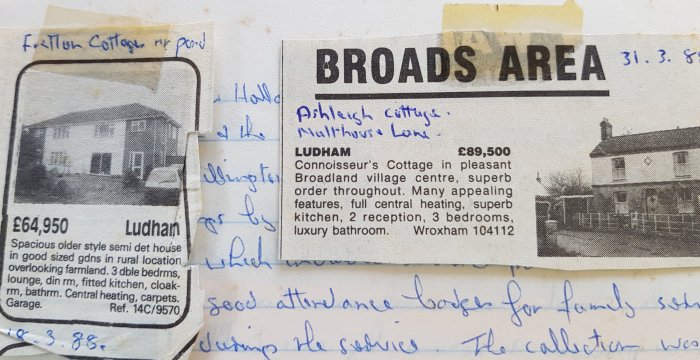 Fritton Cottages nr pond
£64,950 Ludham
Spacious older style semi det house
in good sized gdns in rural location
overlooking farmland. 3 dble bedrms,
lounge, din rm, fitted kitchen, cloak-
rm, bathrm. Central heating, carpets.
Garage. Ref. 14C/9570
8.3.88.
BROADS AREA
31.3.8
Ashleigh Cottage.
Malthouse Lane.
LUDHAM £89,500
Connoisseur's Cottage in pleasant
Broadland village centre, superb
order throughout. Many appealing
features, full central heating, superb
kitchen, 2 reception, 3 bedrooms,
luxury bathroom. Wroxham 104112
the
by
which
good attendance badges for family
during the service. The collection was